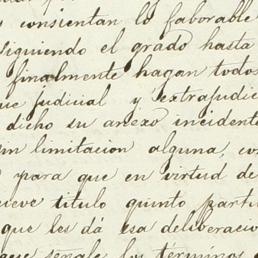 consientan lo faborable
siguiendo el grado hasta
finalmente hagan todos
judicial y extrajudi
dicho su anexo incident
sin limitacion alguna, co
para que en virtud de
nueve titulo quinto parti
que les dá esa deliberacio
que señale los términos